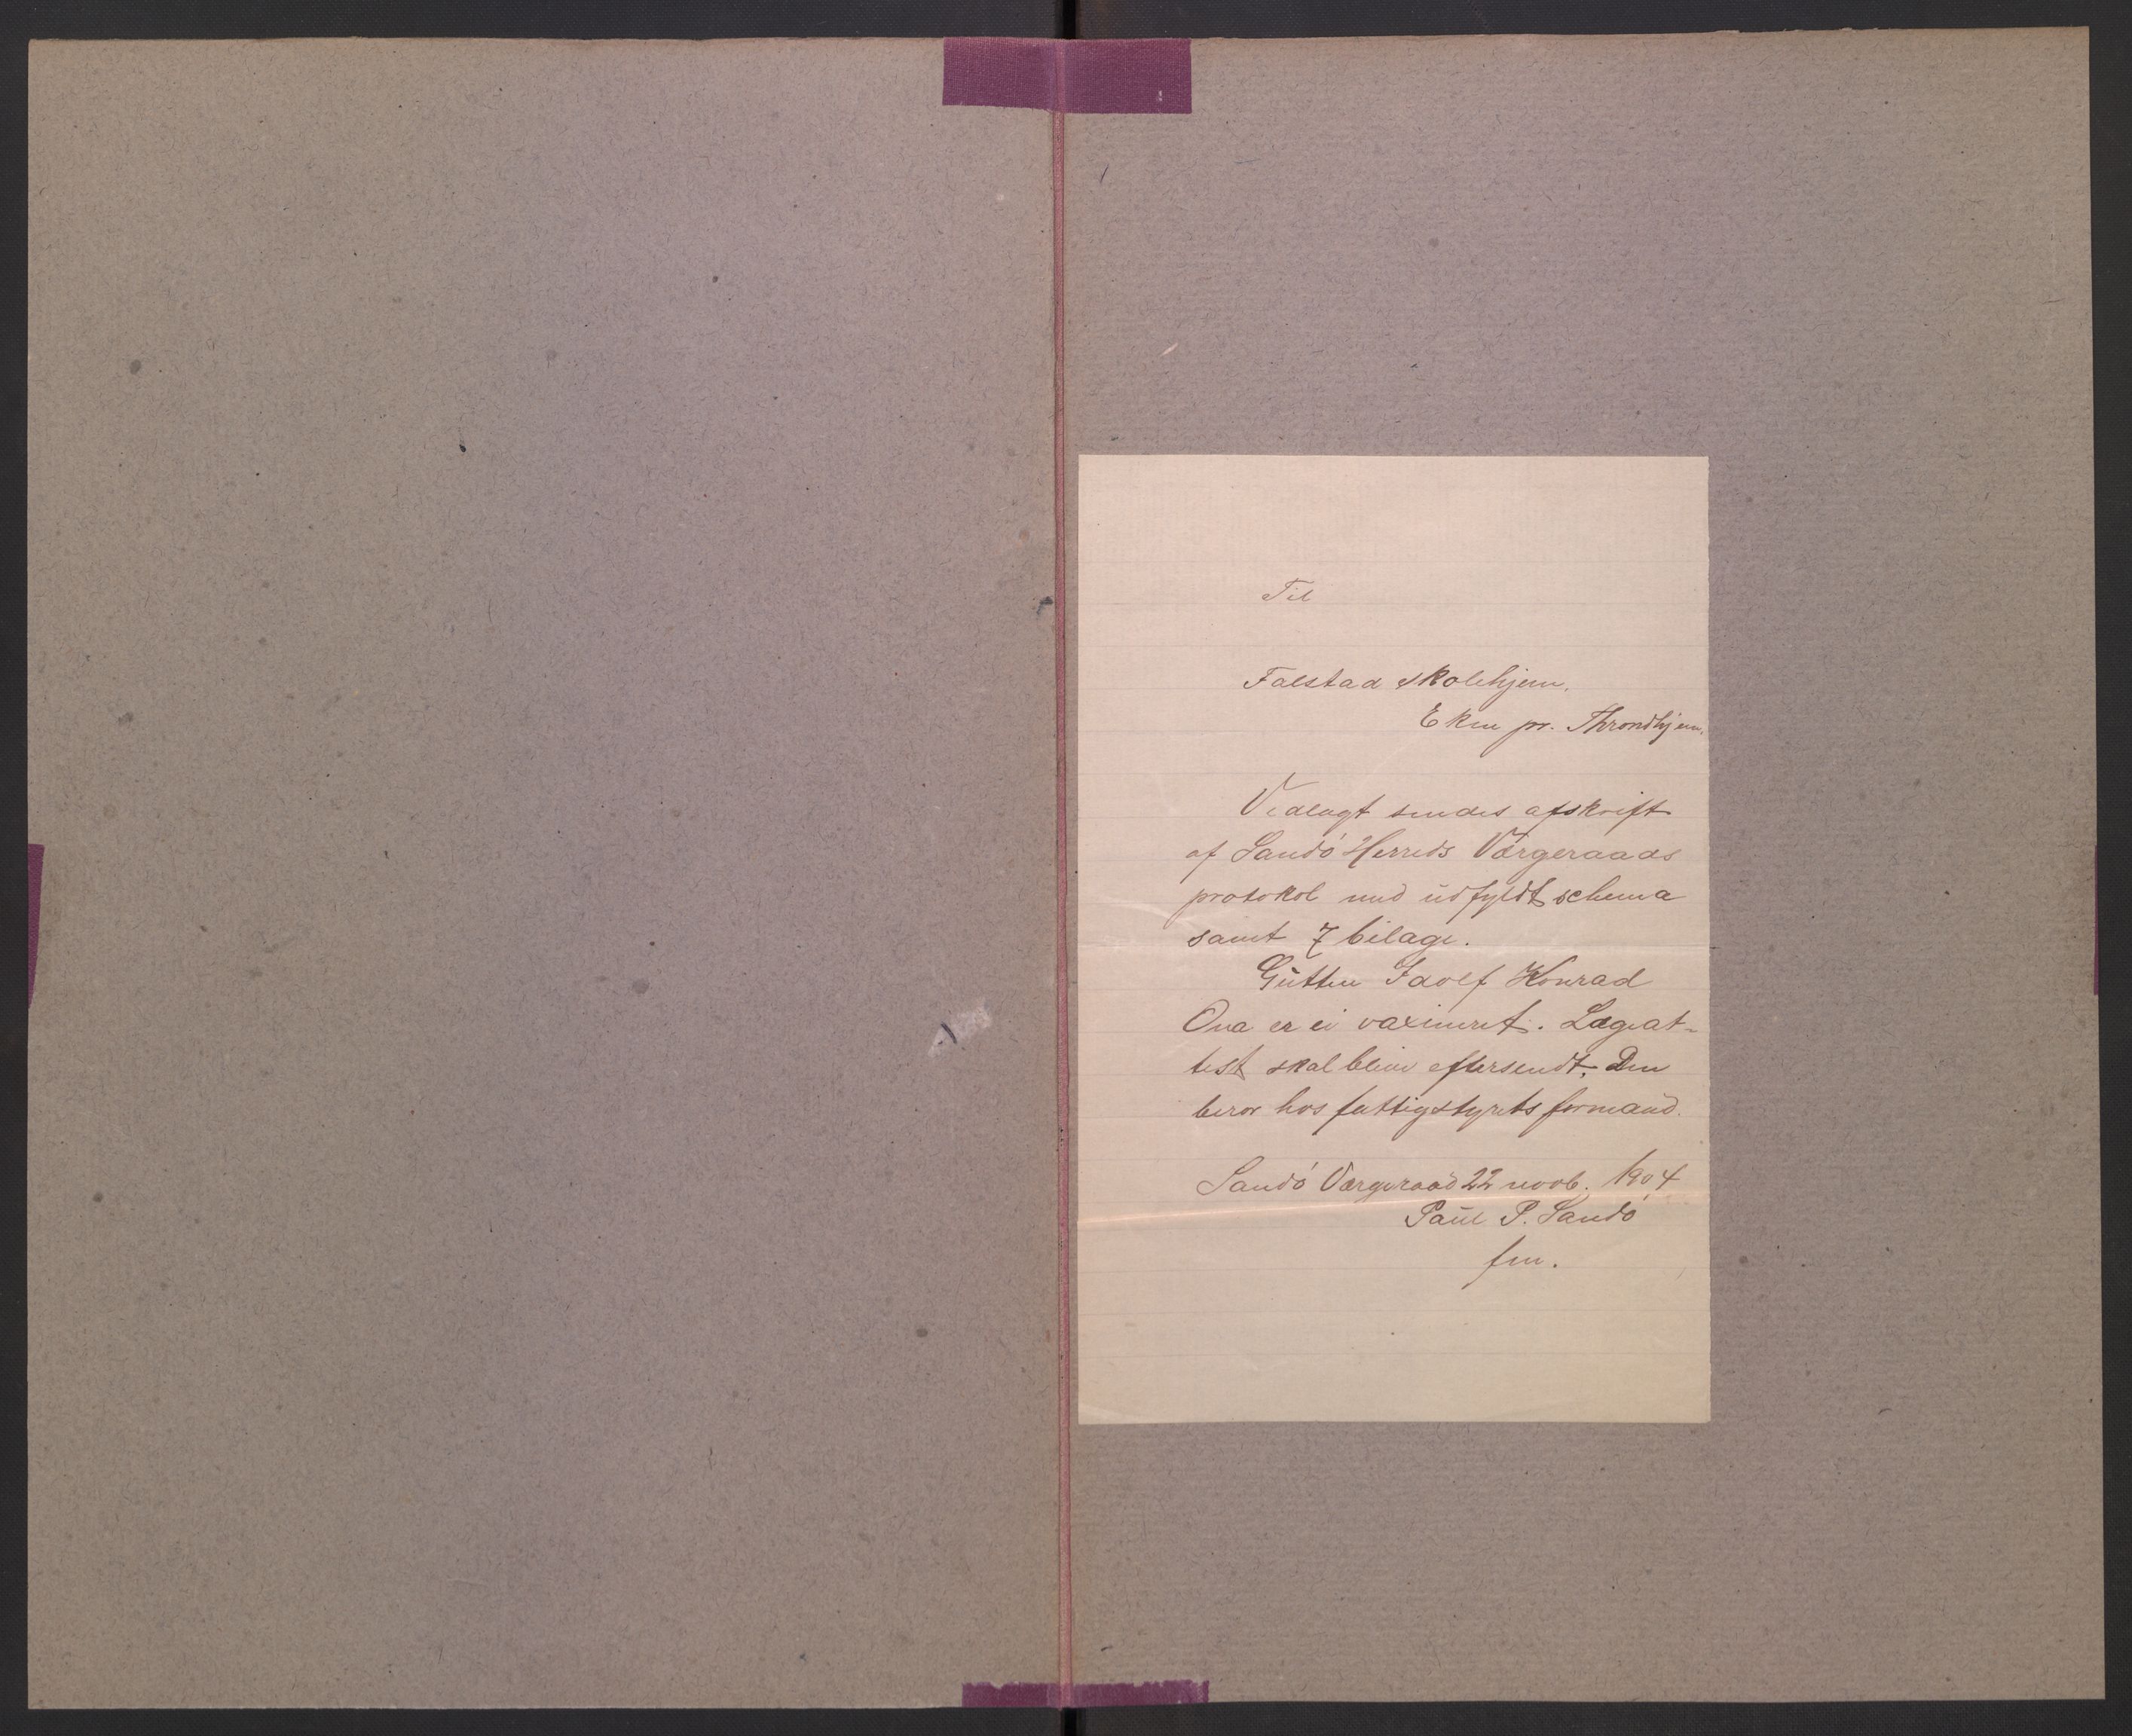 Til
Falstad skolehjem.
Ekne pr. Throndhjem.
Vedlagt sendes afskrift
af Sandö Herreds Værgeraads
protokol med udfyldt schema
samt 7 bilage.
Gutten Idolf Konrad
Ona er ei vaxineret. Lægeat-
test skal blive eftersendt. Den
beror hos fattigstyrets formand.
Sandö Værgeraad 22 novb. 1904
Paul P. Sandö
fm.